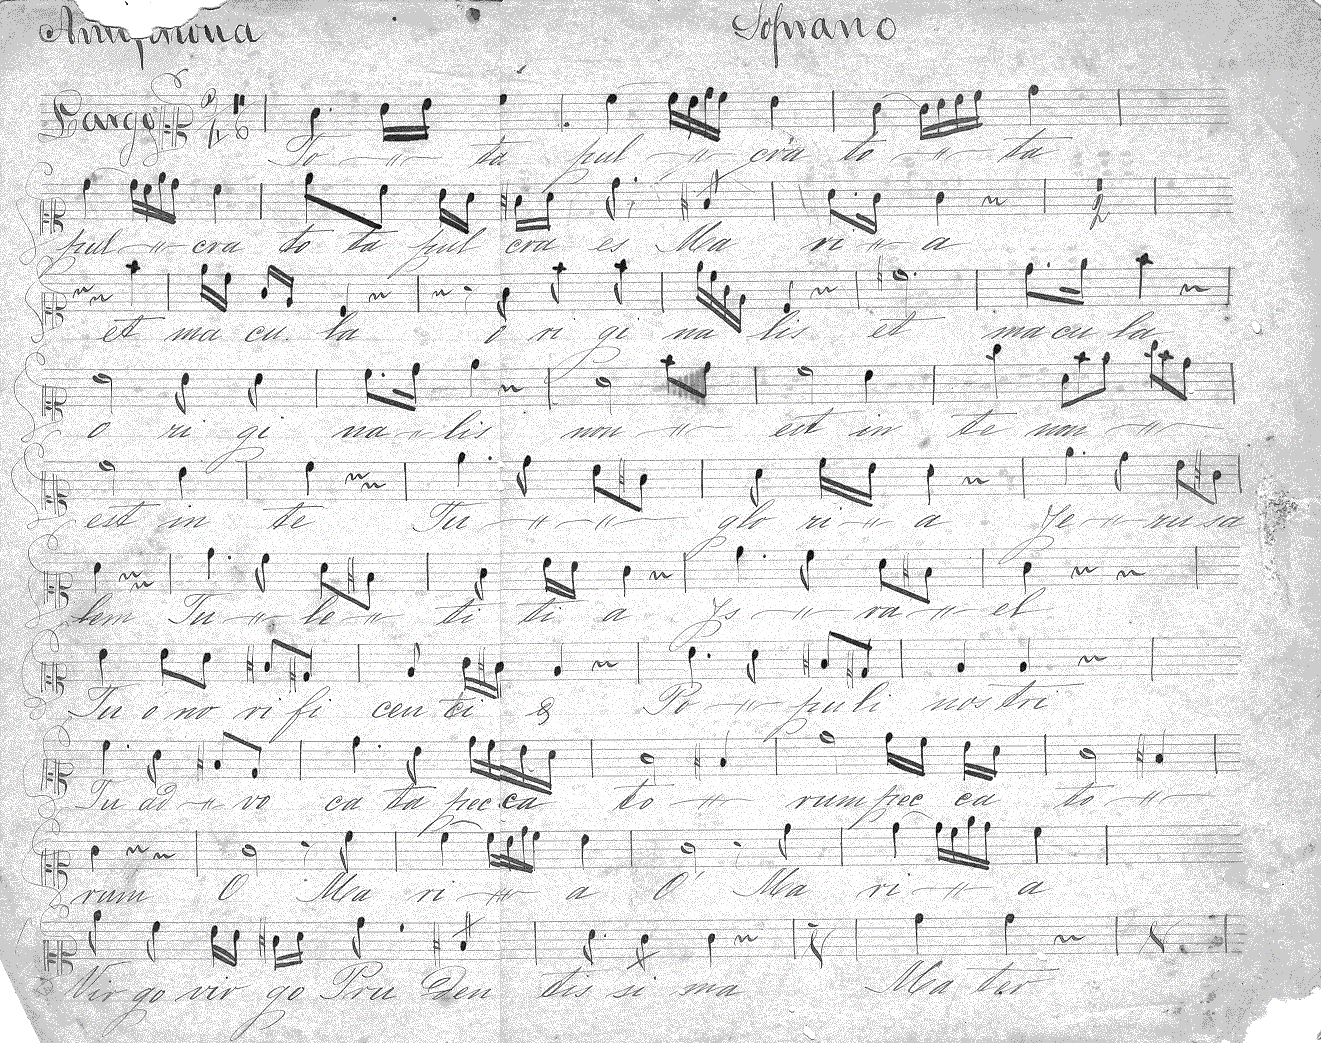 Antiphona Soprano
Largo 3/4 6
To - ta pul - cra to - ta
pul - cra to ta pul cra es Ma ri - a
et ma cu. la o ri gi na lis et ma cu la
o ri gi na - lis non - est in te non -
est in te Tu - - glo ri - a Je - ru sa
lem Tu - le - ti ti a Js - ra - el
Tu o no ri fi cen ti & Po - puli nostri
Tu ad - vo ca ta pec ca to - rum pec ca to -
rum O Ma ri - a O Ma ri - a
Vir go vir go Pru den tis si ma Ma ter